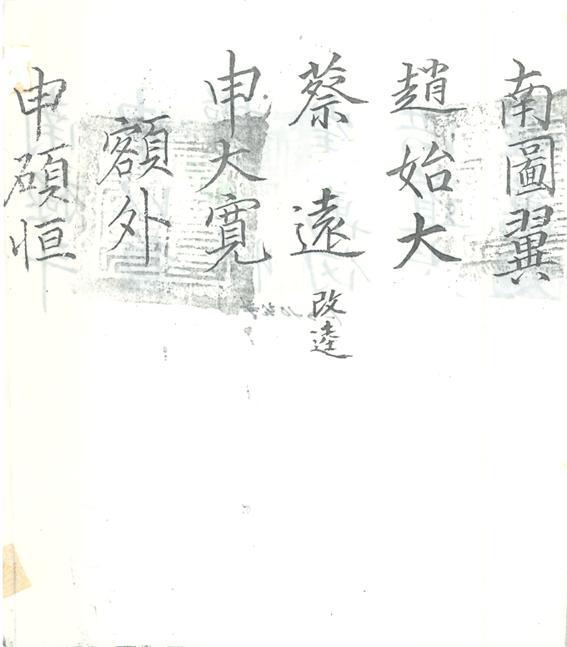 南圖翼
趙始大
蔡遠 改逵
申大寬
額外
申碩恒